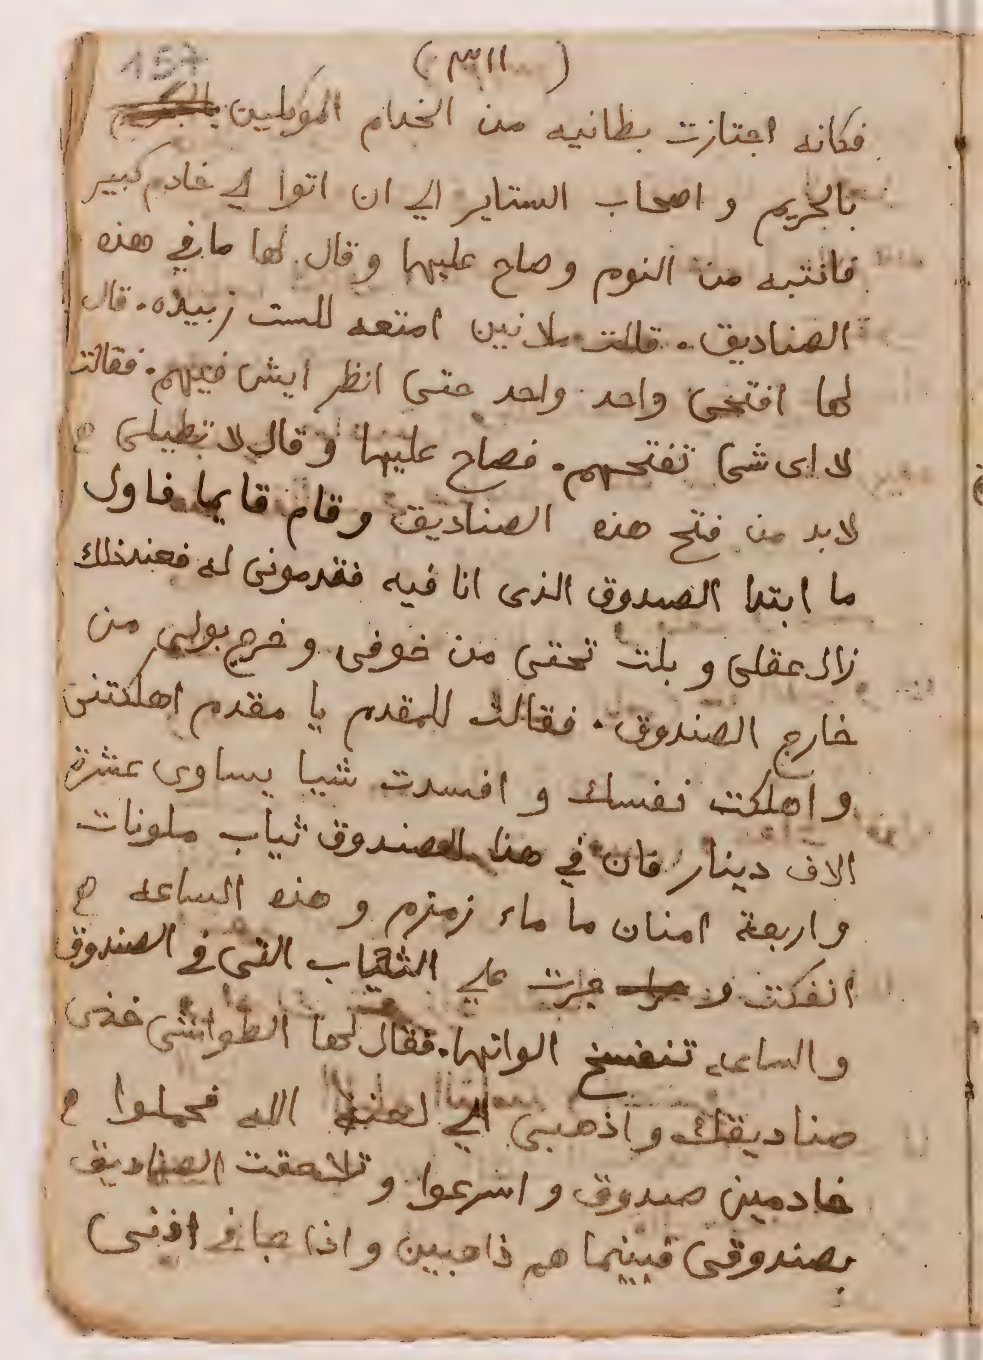 157
(٣١١)
فكانه اجتازت بطانيه من الخدام الموكلين
بالحريم و اصحاب الستاير الي ان اتوا لي خادم كبير
فانتبه من النوم وصاح عليها وقال لها ما في هذه
الصناديق. قالت ملانين امتعه للست زبيده. قال
لها افتحى واحد واحد حتى انظر ايش فيهم. فقالت
لا اى شى تفتحهم. فصاح عليها وقال لا تطيلى
لابد من فتح هذه الصناديق وقام قايما فاول
ما ابتدا الصندوق الذى انا فيه فقدمونى له فعندذلك
زال عقلى و بلت تحتى من خوفى و خرج بولى من
خارج الصندوق. فقالت للمقدم يا مقدم اهلكتنى
و اهلكت نفسك و افسدت شيا يساوى عشرة
الاف دينار فان في هذا الصندوق ثياب ملونات
و اربعة امنان ما ماء زمزم و هذه الساعه
انفكت و جرت علي الثياب التى في الصندوق
والساعه تنفسخ الوانها. فقال لها الطواشى خذى
صناديقك واذهبى الي لعنة الله فحملوا
خادمين صندوق و اسرعوا و تلاحقت الصناديق
بصندوقى فبينما هم ذاهبين واذا جا في اذنى